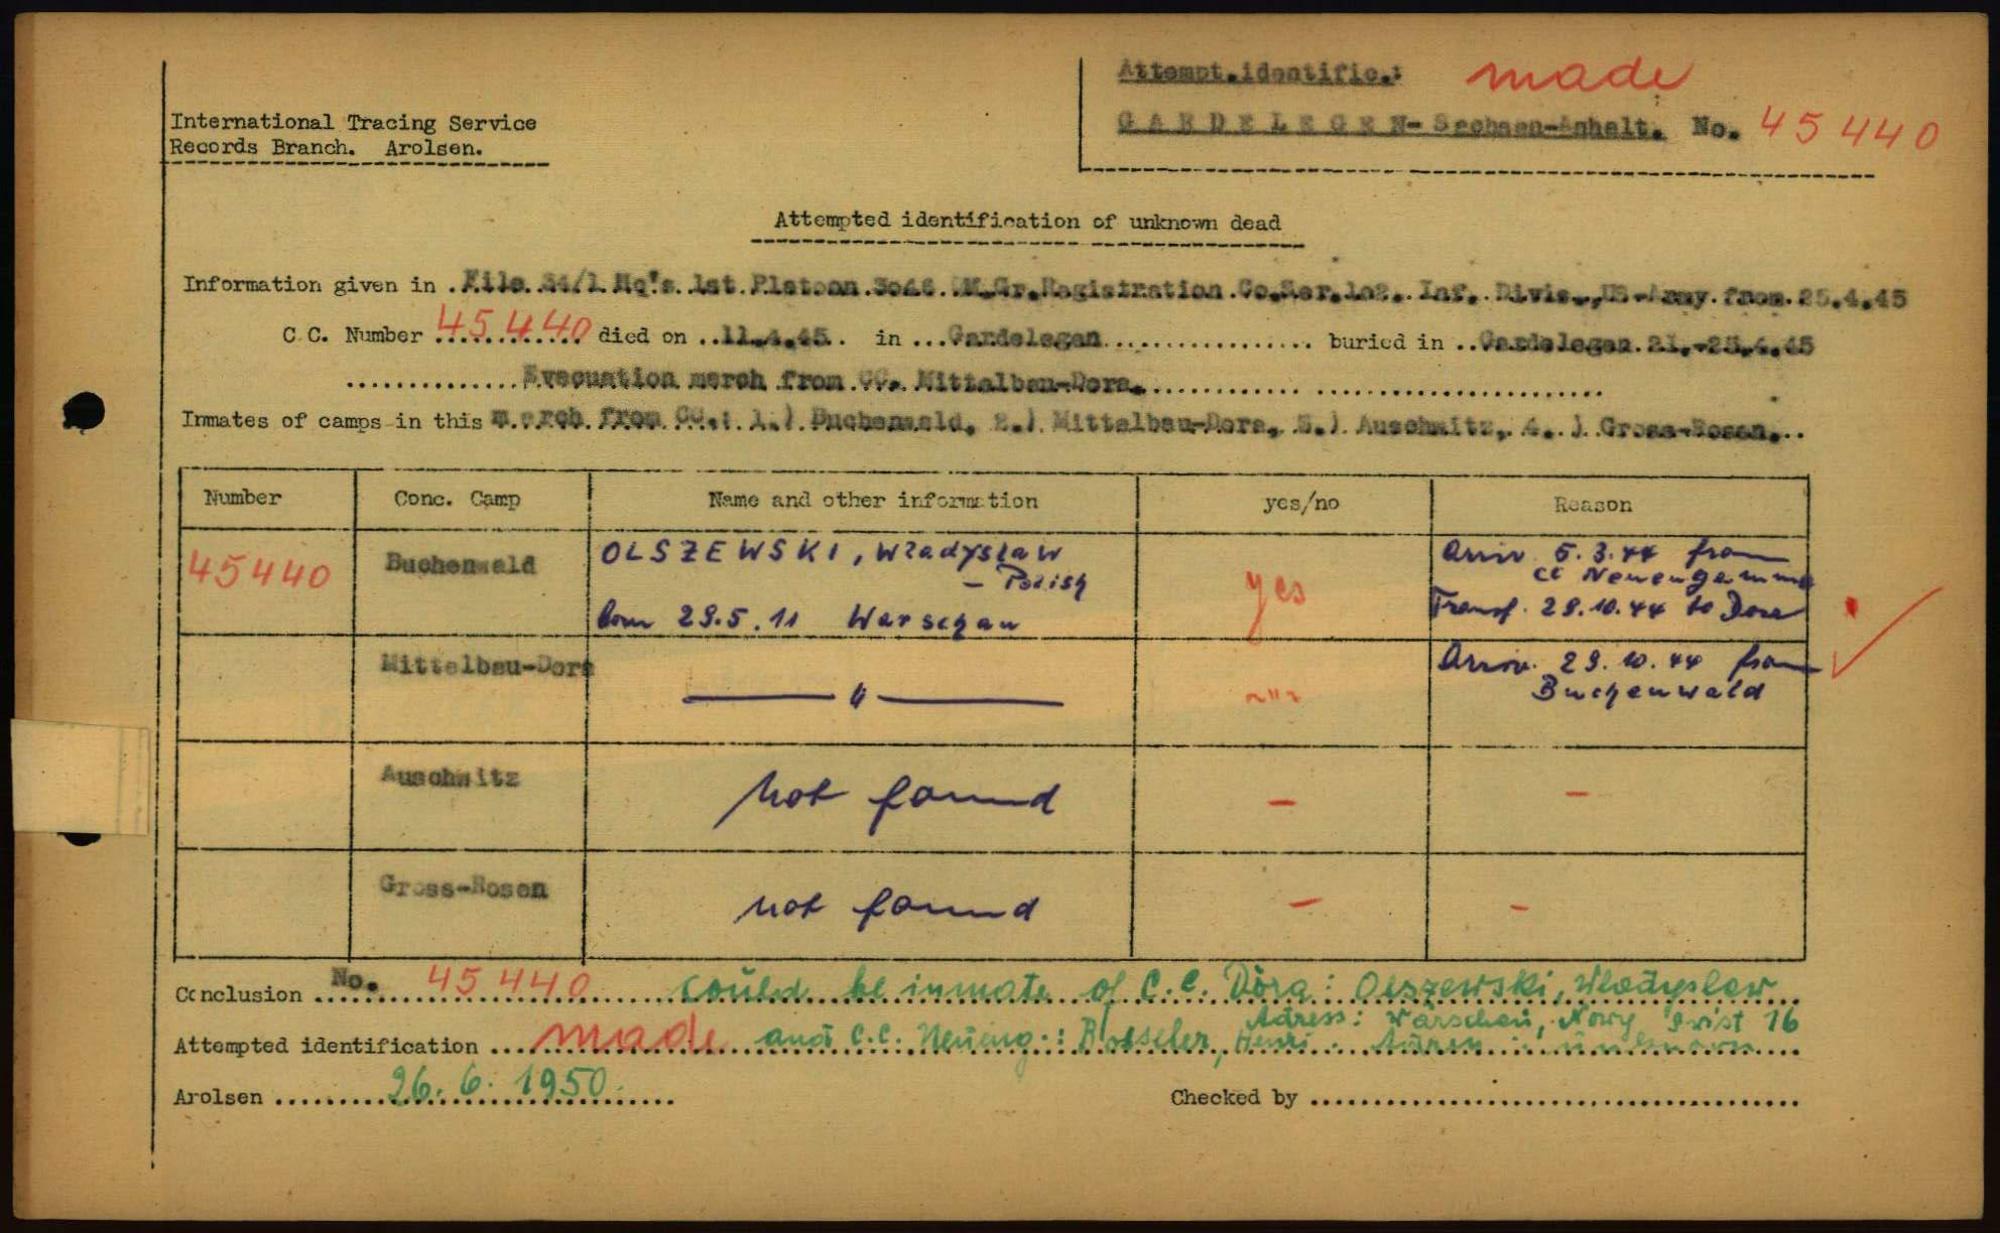 Attempt.identific.: made
GARDELEGEN- Sachsen-Anhalt. No. 45440
International Tracing Service
Records Branch. Arolsen.
Attempted identification of unknown dead
Information given in .File 54/1 Hq's 1st Platoon 3046 QM.Gr.Registration Co.Ser.102. Inf. Divis.,US-Army from 25.4.45
C.C. Number 45440 died on ..11.4.45. in ...Gardelegen................ buried in ..Gardelegen 21.-25.4.45
..............Evacuation march from CC. Mittelbau-Dora.................................
Inmates of camps in this march from CC.: 1.) Buchenwald, 2.) Mittelbau-Dora, 3.) Auschwitz, 4. ) Gross-Rosen...
Number Conc. Camp Name and other information yes/no Reason
45440 Buchenwald OLSZEWSKI, Władysław yes Arriv. 5.3.44 from
- Polish CC Neuengamme
born 29.5.11 Warschau Transf. 29.10.44 to Dora
Mittelbau-Dora " " Arriv. 29.10.44 from
Buchenwald
Auschwitz not found - -
Gross-Rosen not found - -
Conclusion No. 45440 could be inmate of C.C. Dora: Olszewski, Wladyslaw
Adress: Warschau, Nowy 16
Attempted identification made and C.C. Neueng.: Henri. Adress: unknown
Arolsen 26. 6. 1950. Checked by ..........